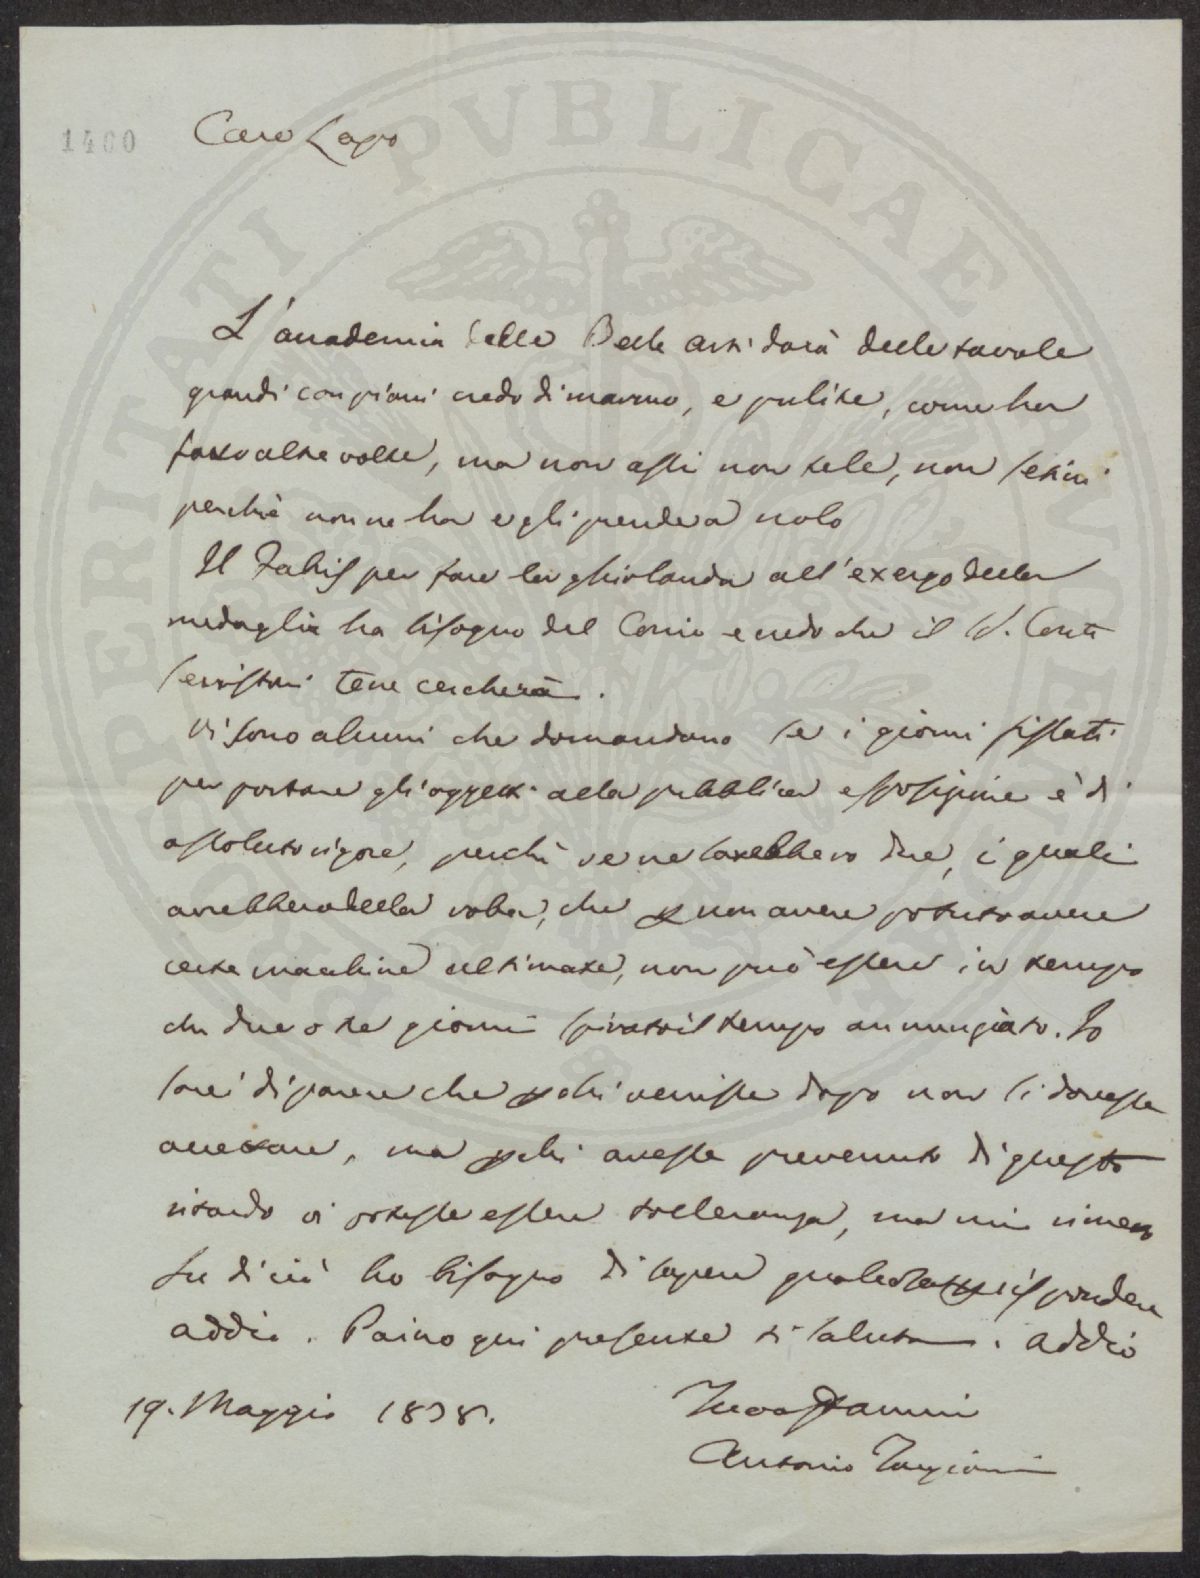 1400
Caro Lapo
L'accademia delle Belle arti darà delle tavole
grandi con piani credo di marmo, e pulite, come ha
fatto altre volte, ma non assi non tele, non
perchè non ne ha e gli prende a nolo
Il Fabris per fare la ghirlanda all'exergo della
medaglia ha bisogno del Conio e credo che il S. Conte
Serristori te ne cercherà.
Vi sono alcuni che domandano se i giorni fissati
per portare gli oggetti alla pubblica esposizione è di
assoluto rigore, perchè ve ne sarebbero due, i quali
avrebbero della roba, che p non avere potuto avere
certe macchine ultimate, non può essere in tempo
che due o tre giorni spirato il tempo annunziato. Io
sarei di parere che p chi venisse dopo non si dovesse
accettare, ma p chi avesse prevenuto di questo
ritardo vi potesse essere tolleranza, ma mi rimetto
Su di ciò ho bisogno di sapere rispondere
addio. Paino qui presente ti saluta. addio
19. Maggio 1838.
Antonio Targioni
PROSPERITATI PVBLICAE AVGENDAE